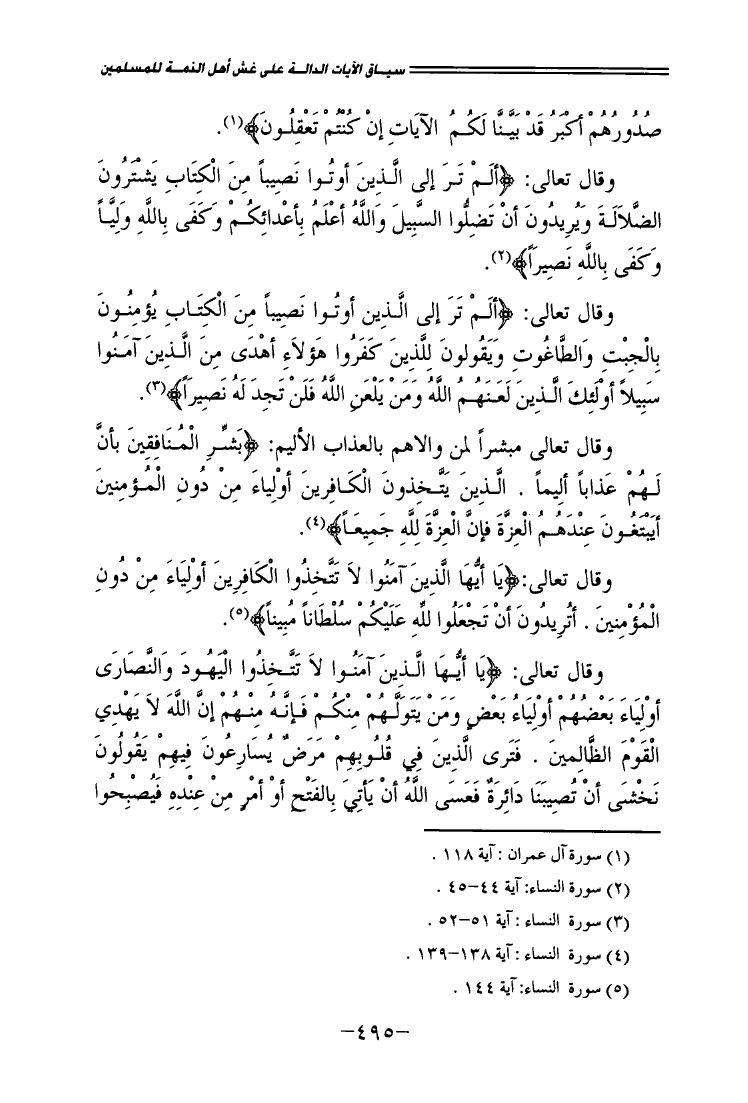 سياق الآيات الدالة على غش أهل الذمة للمسلمين
صُدُورُهُمْ أَكْبَرُ قَدْ بَيَّنَّا لَكُمُ الآيَاتِ إنْ كُنْتُمْ تَعْقِلُونَ﴾(١).
وقال تعالى: ﴿أَلَمْ تَرَ إلى الَّذِينَ أوتُوا نَصِيباً مِنَ الْكِتَابِ يَشْتَرُونَ
الضَّلاَلَةَ وَيُرِيدُونَ أنْ تَضِلُّوا السَّبِيلَ وَاللَّهُ أعْلَمُ بِأعْدَائِكُمْ وَكَفَى بِاللَّهِ وَلِيّاً
وَكَفَى بِاللَّهِ نَصِيراً﴾(٢).
وقال تعالى: ﴿أَلَمْ تَرَ إلى الَّذِين أوتُوا نَصِيباً مِنَ الْكِتَابِ يُؤمِنُونَ
بِالْجِبْتِ وَالطَّاغُوتِ وَيَقُولونَ لِلَّذِينَ كَفَرُوا هَؤلاَءِ أهْدَى مِنَ الَّذِينَ آمَنُوا
سَبِيلاً أولَئِكَ الَّذِينَ لَعَنَهُمُ اللَّهُ وَمَنْ يَلْعَنِ اللَّهُ فَلَنْ تَجِدَ لَهُ نَصِيراً﴾(٣).
وقال تعالى مبشراً لمن والاهم بالعذاب الأليم: ﴿بَشِّرِ الْمُنَافِقِينَ بأنَّ
لَهُمْ عَذَاباً ألِيماً . الَّذِينَ يَتَّخِذونَ الْكَافِرِينَ أوْلِيَاءَ مِنْ دُونِ الْمُؤمِنِينَ
أيَبْتَغُونَ عِنْدَهُمُ الْعِزَّةَ فإنَّ الْعِزَّةَ لِلَّهِ جَمِيعَاً﴾(٤).
وقال تعالى:﴿يَا أيُّهَا الَّذِينَ آمَنُوا لاَ تَتَّخِذُوا الْكَافِرِينَ أوْلِيَاءَ مِنْ دُونِ
الْمُؤْمِنِينَ . أتُرِيدُونَ أنْ تَجْعَلُوا للَّهِ عَلَيْكُمْ سُلْطَاناً مُبِيناً﴾(٥).
وقال تعالى: ﴿يَا أيُّهَا الَّذِينَ آمَنُوا لاَ تَتَّخِذُوا الْيَهُودَ وَالنَّصَارَى
أوْلِيَاءَ بَعْضُهُمْ أوْلِيَاءُ بَعْضٍ وَمَنْ يَتَوَلَّهُمْ مِنْكُمْ فَإنَّهُ مِنْهُمْ إنَّ اللَّهَ لاَ يَهْدِي
الْقَوْمَ الظَّالِمِينَ . فَتَرَى الَّذِينَ فِي قُلُوبِهِمْ مَرَضٌ يُسَارِعُونَ فِيهِمْ يَقُولُونَ
نَخْشَى أنْ تُصِيبَنَا دَائِرَةٌ فَعَسَى اللَّهُ أنْ يَأتِيَ بِالفَتْحِ أوْ أمْرٍ مِنْ عِنْدِهِ فَيُصْبِحُوا
(١) سورة آل عمران : آية ١١٨ .
(٢) سورة النساء: آية ٤٤-٤٥ .
(٣) سورة النساء : آية ٥١-٥٢ .
(٤) سورة النساء : آية ١٣٨-١٣٩ .
(٥) سورة النساء: آية ١٤٤ .
-٤٩٥-